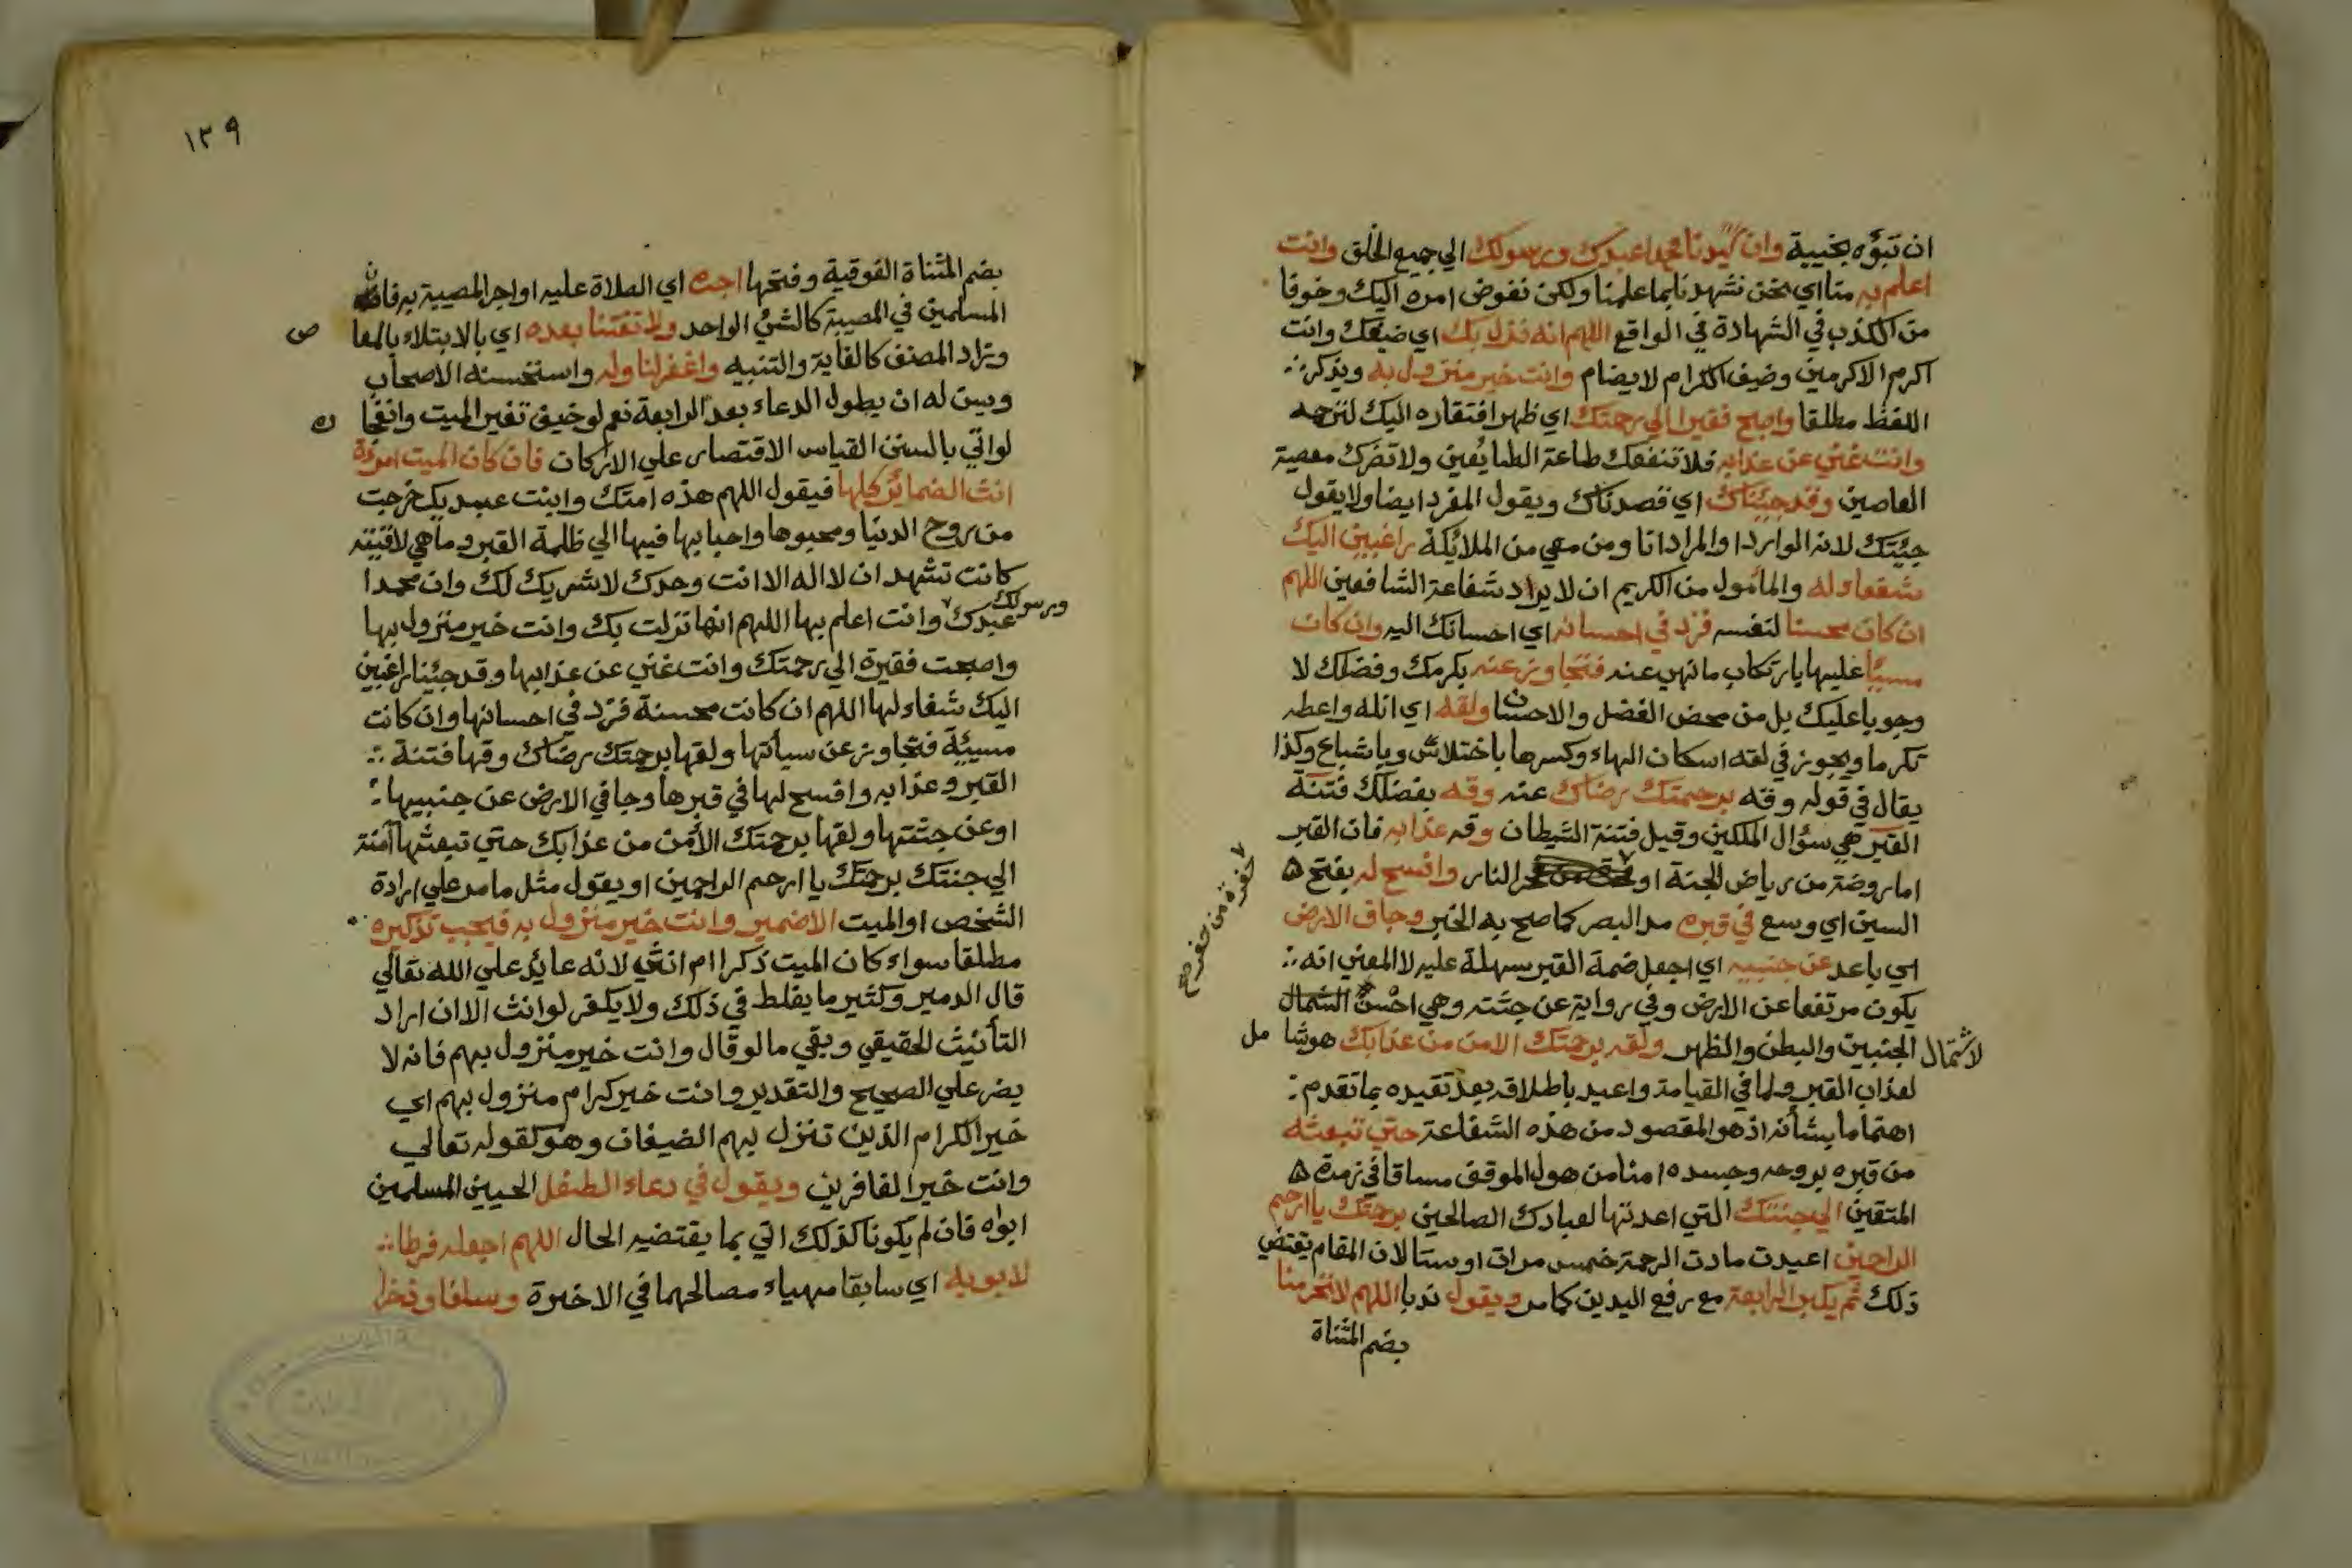 ان تبؤه بخيبة وان سيدنا محمدا عبدك ورسولك الي جميع الخلق وانت
اعلم به منا اي نحن نشهدنا بما علمنا ولكن نفوض امره اليك وخوفا
من الكذب في الشهادة في الواقع اللهم انه نزل بك اي ضيفك وانت
اكرم الاكرمين وضيف الكرام لا يضام وانت خير منزول به ويذكر
اللفظ مطلقا واصبح فقيرا الي رحمتك اي ظهر افتقاره اليك لترحمه
وانت غني عن عذابه فلا تنفعك طاعة الطائعين ولا تضرك معصية
العاصين وقد جئناك اي قصدناك ويقول المفرد ايضا ولا يقول
جئتك لانه الوارد او المراد انا ومن معي من الملائكة راغبين اليك
شفعاء له والمأمول من الكريم ان لا يراد شفاعة الشافعين اللهم
ان كان محسنا لنفسه فزد في احسانه اي احسانك اليه وان كان
مسيئا عليها بارتكاب ما نهي عنه فتجاوز عنه بكرمك وفضلك لا
وجوبا عليك بل من محض الفضل والاحسان ولقه اي انله واعطه
تكرما ويجوز في لقه اسكان الهاء وكسرها باختلاس وباشباع وكذا
يقال في قوله وقه برحمتك رضاك عنه وقه بفضلك فتنة
القبر هي سؤال الملكين وقيل فتنة الشيطان وقه عذابه فان القبر
اما روضة من رياض الجنة او النار وافسح له بفتح
حفرة من حفر صح
السين اي وسع في قبره مد البصر كما صح به الخبر وجاف الارض
اي باعد عن جنبيه اي اجعل ضمة القبر سهلة عليه لا المعني انه
يكون مرتفعا عن الارض وفي رواية عن جثته وهي احسن الشمال
لاشتمال الجنبين والبطن والظهر ولقه برحمتك الامن من عذابك هو شا مل
لعذاب القبر ولما في القيامة واعيد باطلاقه بعد تقيده بما تقدم
اهتماما بشأنه اذ هو المقصود من هذه الشفاعة حتي تبعثه
من قبره بروحه وجسده امنا من هول الموقف مساقا في زمرة
المتقين الي جنتك التي اعدتها لعبادك الصالحين برحمتك يا ارحم
الراحمين اعيدت مادت الرحمة خمس مرات او ستا لان المقام يقتضي
ذلك ثم يكبر الرابعة مع رفع اليدين كما مر ويقول ندبا اللهم لا تحرمنا
بضم المثناة
١٣٩
بضم المثناة الفوقية وفتحها اجره اي الصلاة عليه او اجر المصيبة به فان
المسلمين في المصيبة كالشئ الواحد ولا تفتنا بعده اي بالابتلاء بالمعا ص
وزاد المصنف كالغاية والتنبيه واغفر لنا وله واستحسنه الاصحاب
ويسن له ان يطول الدعاء بعد الرابعة نعم لو خيف تغير الميت وانفجا ره
لو اتي بالسنن القياس الاقتصار علي الاركان فان كان الميت امرءة
انث الضمائر كلها فيقول اللهم هذه امتك وابنت عبديك خرجت
من روح الدنيا ومحبوها واحبابها فيها الي ظلمة القبر وما هي لاقيته
كانت تشهد ان لا اله الا انت وحدك لا شريك لك وان محمدا
عبدك ورسولك وانت اعلم بها اللهم انها نزلت بك وانت خير منزول بها
واصبحت فقيرة الي رحمتك وانت غني عن عذابها وقد جئنا راغبين
اليك شفاء لها اللهم ان كانت محسنة فزد في احسانها وان كانت
مسيئة فتجاوز عن سيأتها ولقها برحمتك رضاك وقها فتنة
القبر وعذابه وافسح لها في قبرها وجافي الارض عن جنبيها
او عن جثتها ولقها برحمتك الأمن من عذابك حتي تبعثها آمنة
الي جنتك برحمتك يا ارحم الراحمين او يقول مثل ما مر علي ارادة
الشخص او الميت الا ضمير وانت خير منزول به فيجب تذكيره
مطلقا سواء كان الميت ذكرا ام انثي لانه عائد علي الله تعالي
قال الدمير وكثير ما يغلط في ذلك ولا يكفر لو انث الا ان اراد
التأنيث الحقيقي وبقي ما لو قال وانت خير منزول بهم فانه لا
يضر علي الصحيح والتقدير وانت خير كرام منزول بهم اي
خير الكرام الذين تنزل بهم الضيفان وهو كقوله تعالي
وانت خير الغافرين ويقول في دعاء الطفل الحيين المسلمين
ابواه فان لم يكونا كذلك اتي بما يقتضيه الحال اللهم اجعله فرطا
لابويه اي سابقا مهياء مصالحهما في الاخيرة وسلفا وذخرا